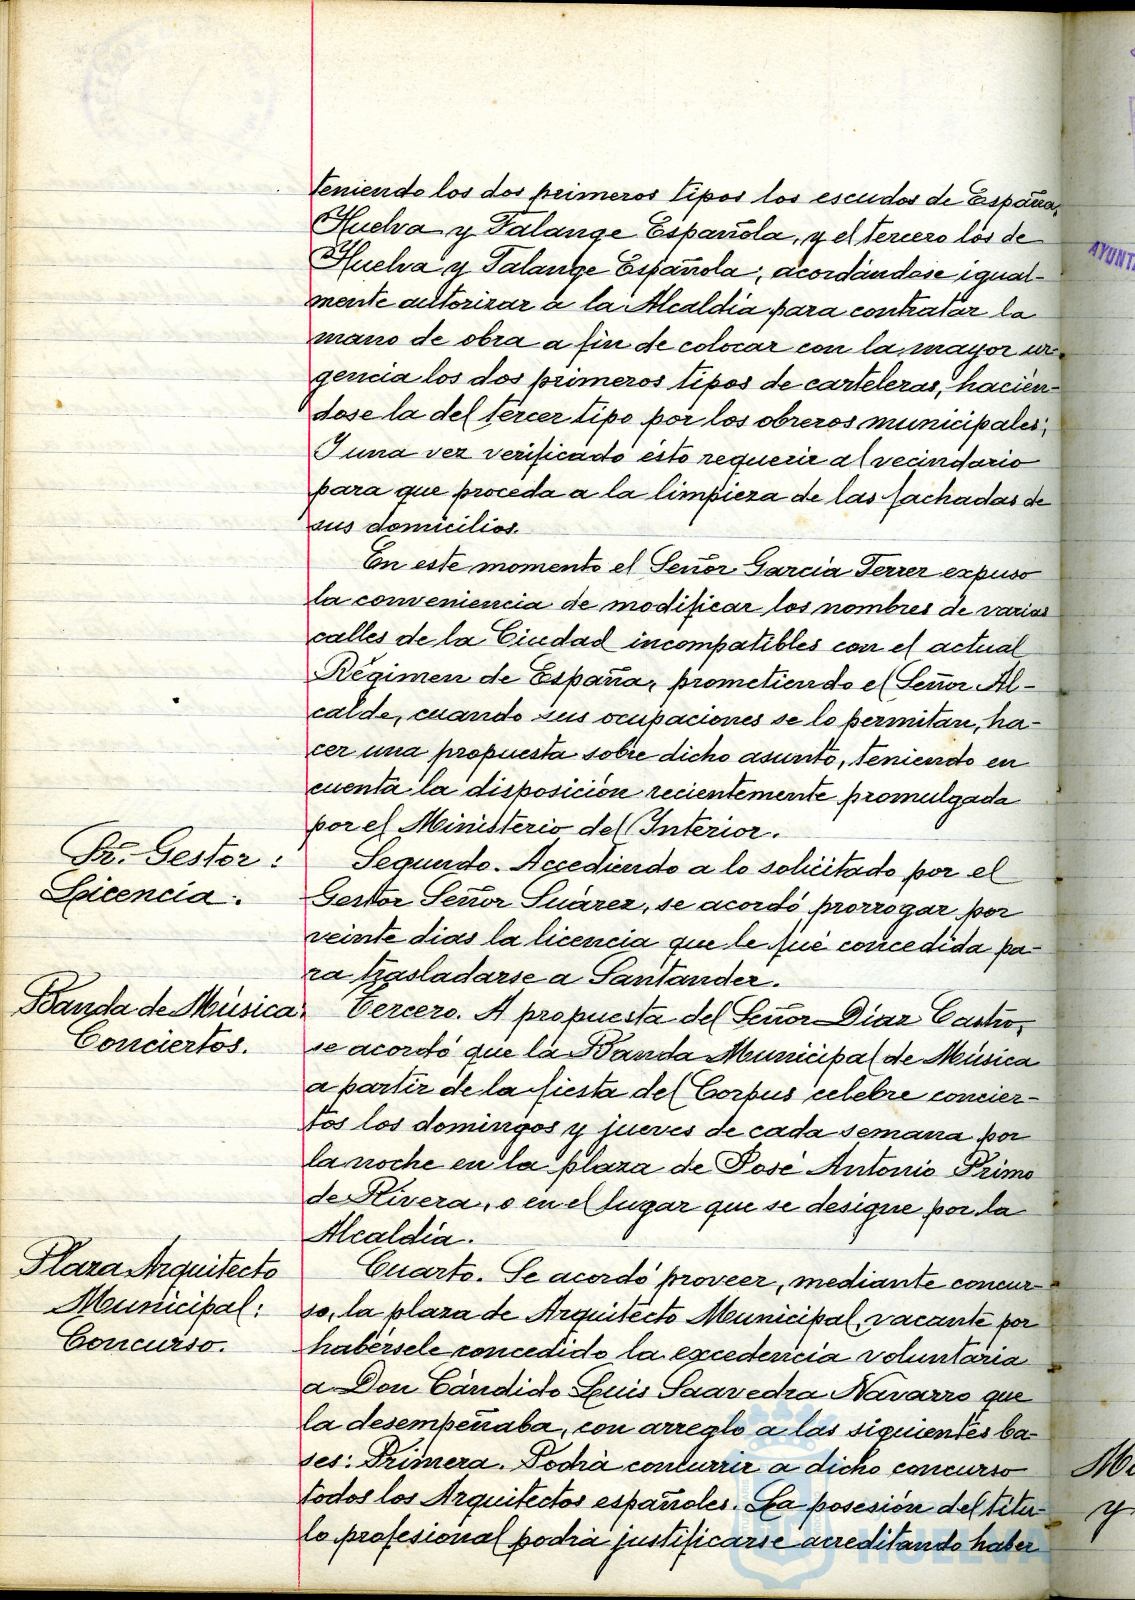 teniendo los dos primeros tipos los escudos de España,
Huelva y Falange Española, y el tercero los de
Huelva y Falange Española; acordándose igual-
mente autorizar a la Alcaldía para contratar la
mano de obra a fin de colocar con la mayor ur-
gencia los dos primeros tipos de carteleras, hacién-
dose la del tercer tipo por los obreros municipales;
Y una vez verificado ésto requerir al vecindario
para que proceda a la limpieza de las fachadas de
sus domicilios.
En este momento el Señor García Ferrer expuso
la conveniencia de modificar los nombres de varias
calles de la Ciudad incompatibles con el actual
Régimen de España, prometiendo el Señor Al-
calde, cuando sus ocupaciones se lo permitan, ha-
cer una propuesta sobre dicho asunto, teniendo en
cuenta la disposición recientemente promulgada
por el Ministerio del Interior.
Sr. Gestor:
Licencia.
Segundo. Accediendo a lo solicitado por el
Gestor Señor Suárez, se acordó prorrogar por
veinte dias la licencia que le fué concedida pa-
ra trasladarse a Santander.
Banda de Música.
Conciertos.
Tercero. A propuesta del Señor Díaz Castro,
se acordó que la Banda Municipal de Música
a partir de la fiesta del Corpus celebre concier-
tos los domingos y jueves de cada semana por
la noche en la plaza de José Antonio Primo
de Rivera, o en el lugar que se designe por la
Alcaldía.
Plaza Arquitecto
Municipal:
Concurso.
Cuarto. Se acordó proveer, mediante concur-
so, la plaza de Arquitecto Municipal, vacante por
habérsele concedido la excedencia voluntaria
a Don Cándido Luis Saavedra Navarro que
la desempeñaba, con arreglo a las siguientes ba-
ses: Primera. Podrá concurrir a dicho concurso
todos los Arquitectos españoles. La posesión del títu-
lo profesional podrá justificarse acreditando haber